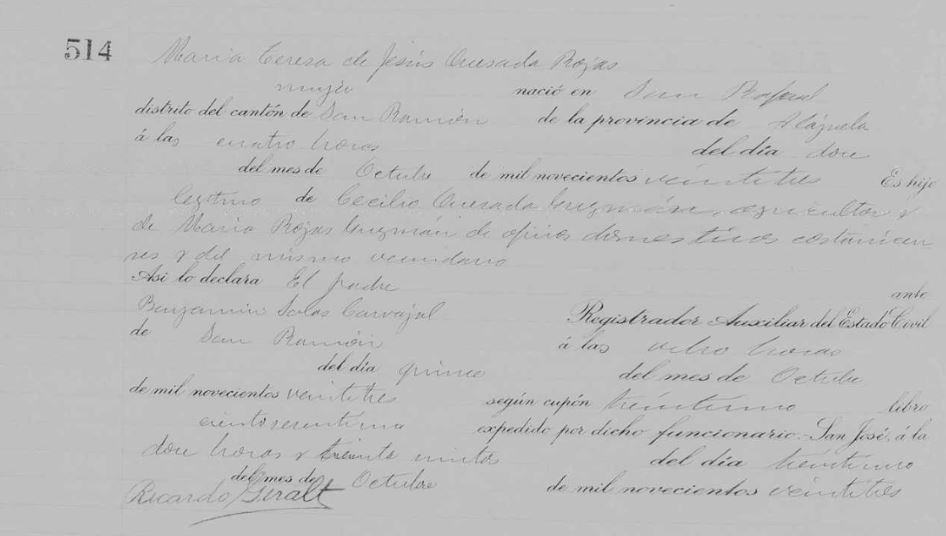 514
Maria Teresa de Jesús Quesada Rojas
mujer nació en San Rafael
distrito del cantón de San Ramón de la provincia de Alajuela
á las cuatro horas del día doce
del mes de Octubre de mil novecientos veintitres Es hijo
legitimo de Cecilio Quesada Guzmán, agricultor y
de Maria Rojas Guzmán de oficios domesticos costarricen
ses y del mismo vecindario
Así lo declara El padre ante
Benjamin Salas Carvajal Registrador Auxiliar del Estado Civil
de San Ramón á las ocho horas
del día quince del mes de Octubre
de mil novecientos veintitres según cupón treintiuno libro
ciento expedido por dicho funcionario. San José, á la
doce horas y treinta del día treintiuno
del mes de Octubre de mil novecientos veintitres
Ricardo Giralt